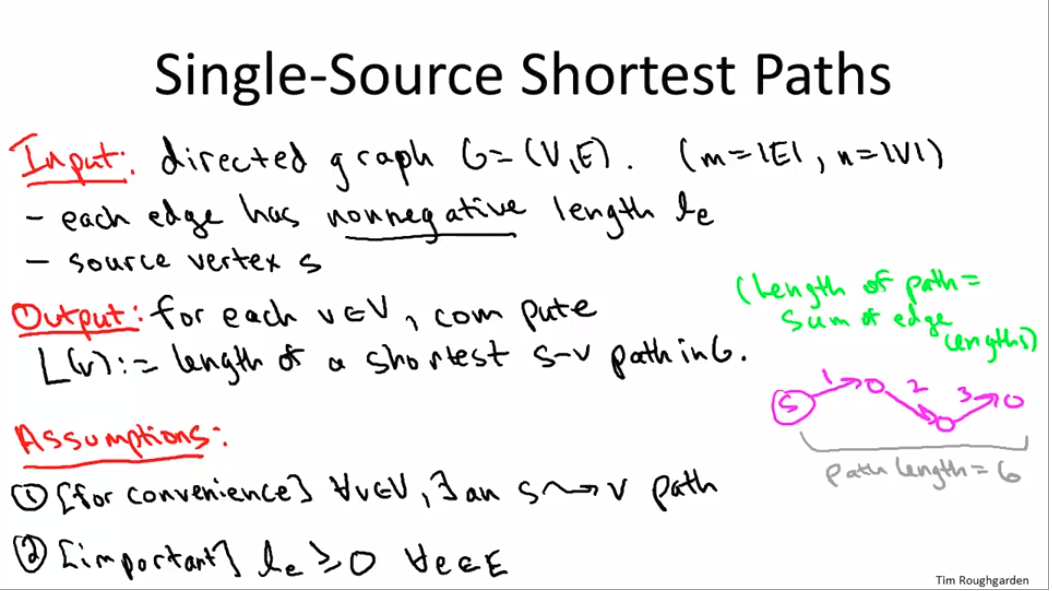 Single-Source Shortest Paths
Input: directed graph G=(V,E). (m=|E|, n=|V|)
- each edge has nonnegative length le
- source vertex s
Output: for each v∈V, compute
L(v) := length of a shortest s-v path in G.
(length of path =
sum of edge
lengths)
S 1 2 3
path length = 6
Assumptions:
① [for convenience] ∀v∈V, ∃ an s⇝v path
② [important] le ≥ 0 ∀e∈E
Tim Roughgarden